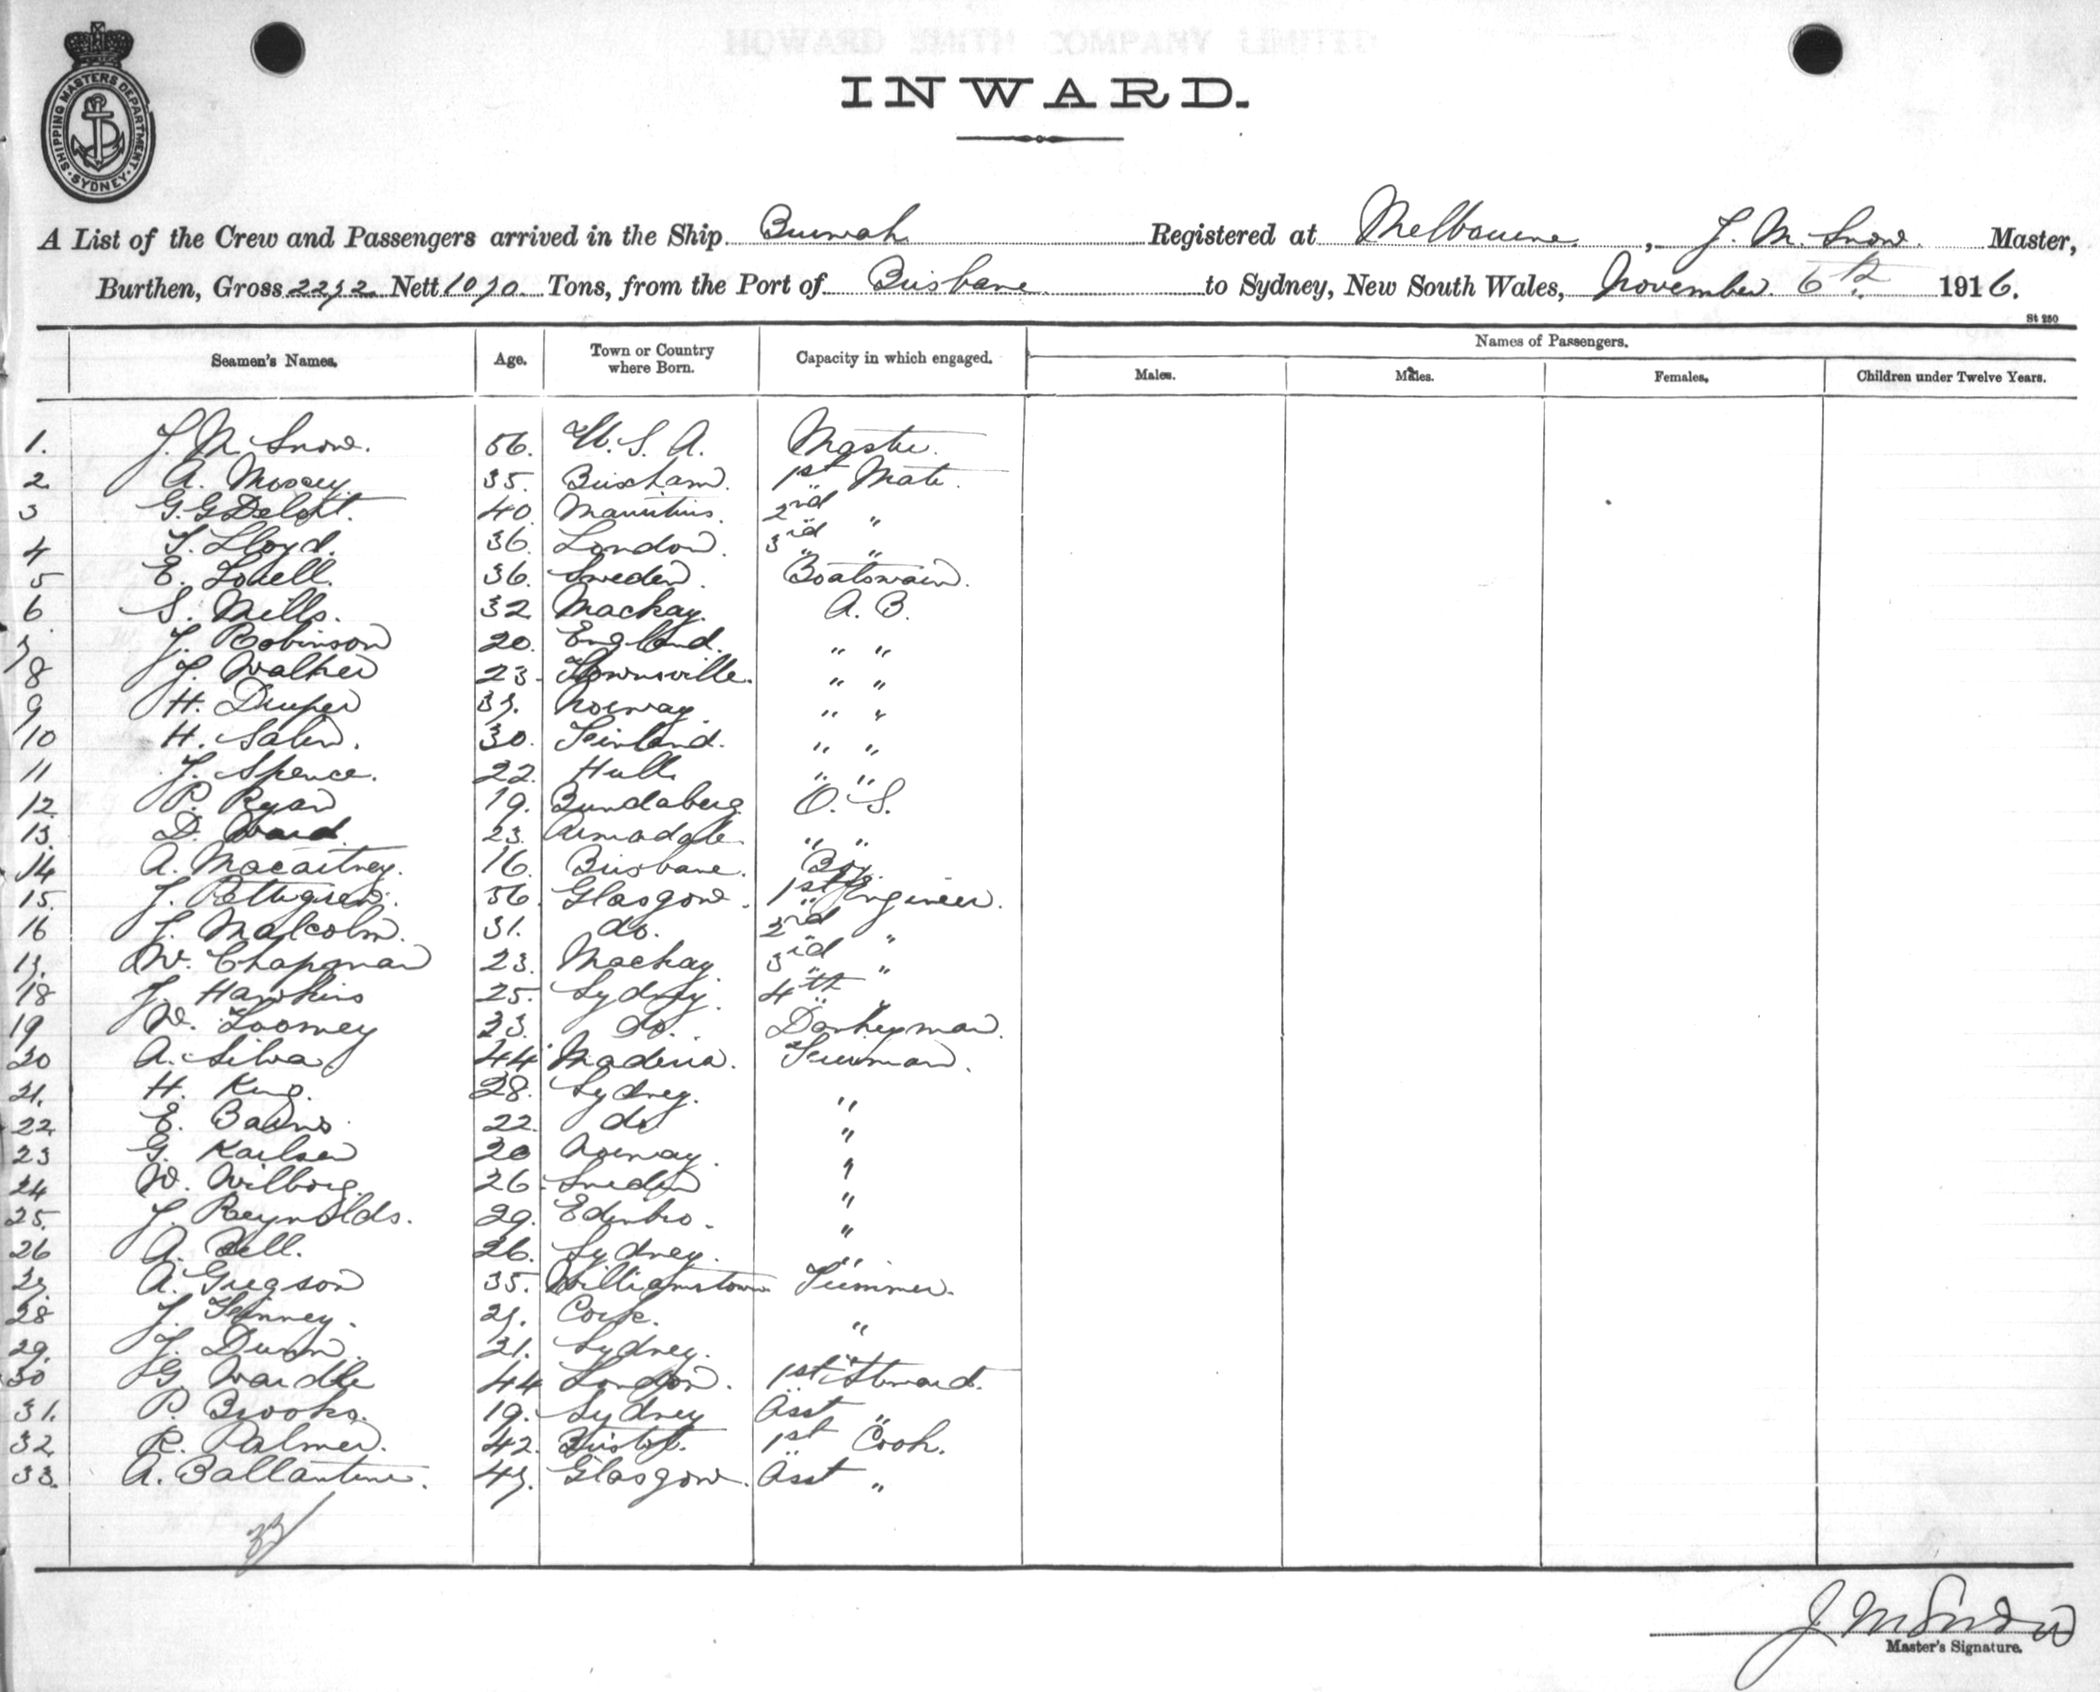 HOWARD SMITH COMPANY LIMITED
SHIPPING MASTERS DEPARTMENT SYDNEY
INWARD.
A List of the Crew and Passengers arrived in the Ship Burwah Registered at Melbourne, J. M. Snow Master,
Burthen, Gross 2272 Nett 1070 Tons, from the Port of Brisbane to Sydney, New South Wales, November 6th 1916.
St 250
Seamen's Names. Age. Town or Country where Born. Capacity in which engaged. Names of Passengers.
Males. Males. Females. Children under Twelve Years.
1. J. M. Snow. 56. U. S. A. Master.
2 A. Mossey. 35. Brixham. 1st Mate.
3 G. G. 40. Mauritius. 2nd "
4 T. Lloyd. 36. London. 3rd "
5 E. 36. Sweden. Boatswain.
6 S. Mills. 32 Mackay. A. B.
7 J. Robinson 20. England. " "
8 J. Walker 23. Townsville. " "
9 H. 37. Norway. " "
10 H. Salin. 30. Finland. " "
11 J. Spence. 22. Hull. " "
12. P. Ryan 19. Bundaberg O. S.
13. D. Ward 23. Armadale. " "
14 A. Macartney. 16. Brisbane. Boy.
15. J. Pettigrew. 56. Glasgow. 1st Engineer.
16 J. Malcolm. 31. do. 2nd "
17. W. Chapman 23. Mackay. 3rd "
18 J. Hawkins 25. Sydney. 4th "
19 W. Toomey 23. do. Donkeyman.
20 A. Silva 44 Maderia. Fireman.
21. H. King. 28. Sydney. "
22. E. 22. do "
23 G. Karlsen 20 Norway. "
24 W. Wilborg. 26. Sweden "
25. J. Reynolds. 29. Edinbro. "
26 A. Bell. 26. Sydney. "
27. A. Gregson 35. Williamstown Trimmer.
28 J. Finney. 27. Cork. "
29. J. Dunn. 21. Sydney. "
30 G. Wardle 44 London. 1st Steward.
31. P. Brooks. 19. Sydney Asst "
32. R. Palmer. 42. Bristol. 1st Cook.
33. A. Ballantine. 47. Glasgow. Asst "
33
J M Snow
Master's Signature.